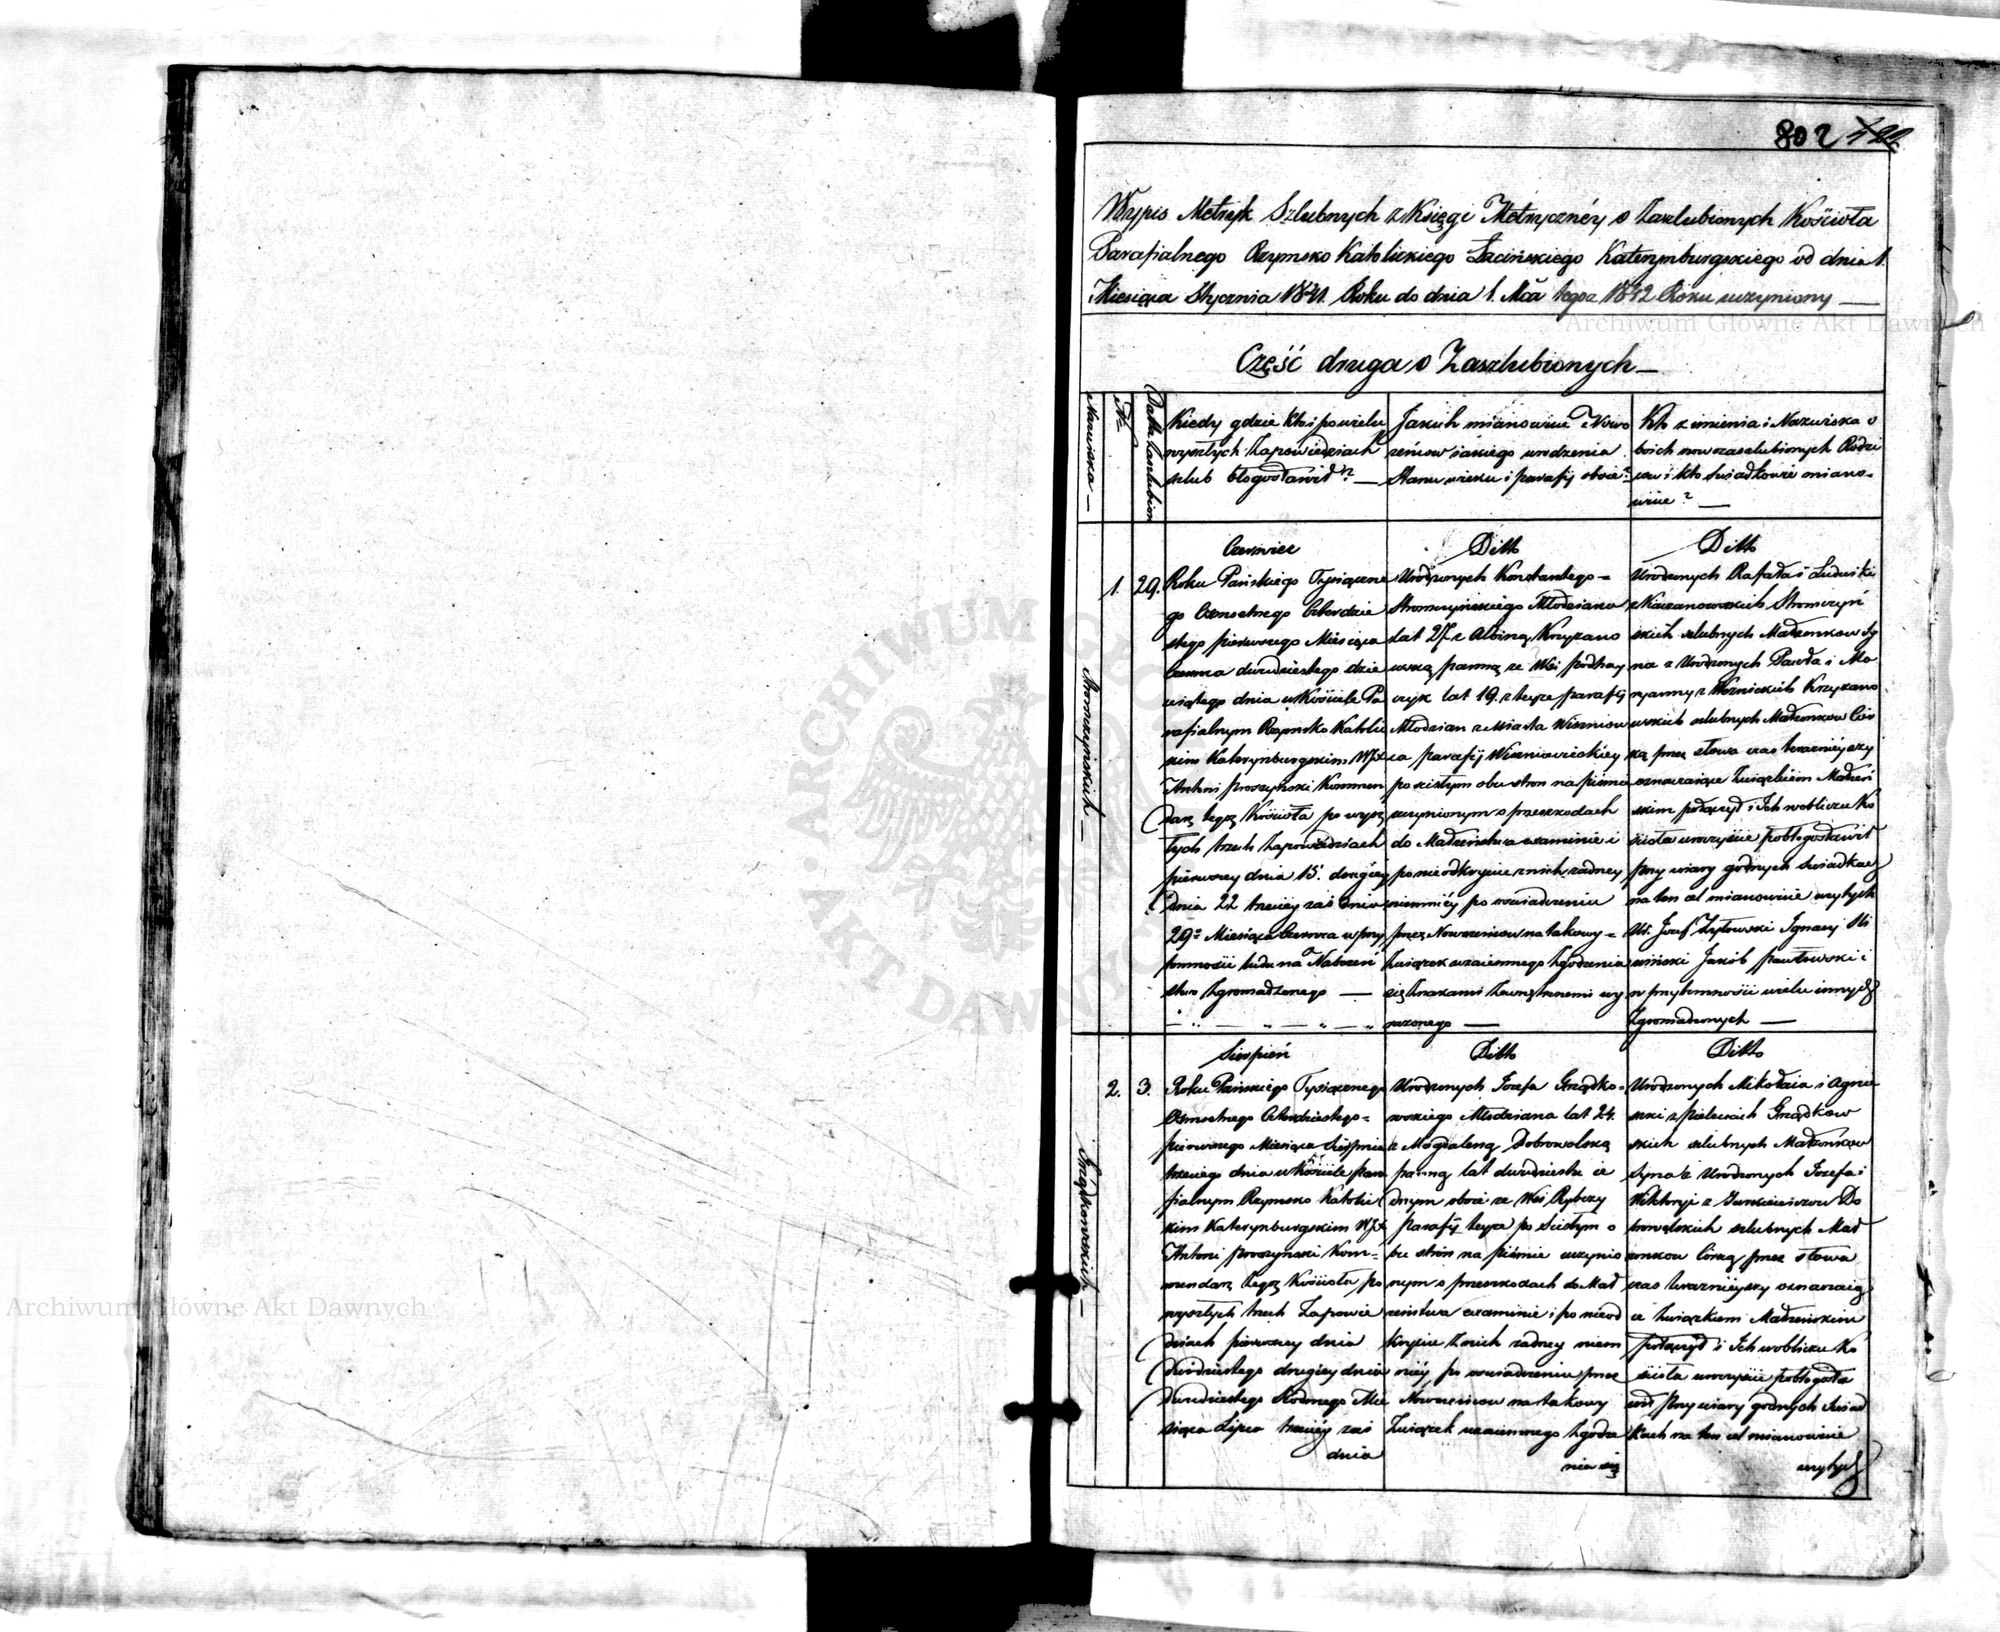 802
Wypis Metryk Szlubnych z Księgi Metrycznéy o Zaszlubionych Kościoła
Parafialnego Rzymsko Katolickiego Łacińskiego Katerynburgskiego od dnia 1.
Miesiąca Stycznia 1841. Roku do dnia 1. Mca tegoz 1842 Roku uczyniony —
Część druga o Zaszlubionych —
Nazwiska —
Nr
Data Zaszlubion
Kiedy gdzie Kto i po wielu
wyszłych Zapowiedziach
szlub błogosławił? —
Jakich mianowicie Nowo
żeńcow iakiego urodzenia
Stanu wieku i parafij oboie?
Kto z imienia i Nazwiska o
boich nowozaszlubionych Rodzi
cow i kto świadkowie miano-
wicie? —
Stromczyńskich —
1.
29.
Czerwiec
Roku Pańskiego Tysiączne
go Osmsetnego Czterdzie
stego pierwszego Miesiąca
Czerwca dwudziestego dzie
wiątego dnia w Kościele Pa
rafialnym Rzymsko Katolic
kim Katerynburgskim WJX
Antoni Proszyński Kommen
darz tegoż Kościoła po wysz
łych trzech Zapowiedziach
pierwszey dnia 15. drugiey
Dnia 22 trzeciey zaś dnia
29o Miesiąca Czerwca w przy
tomności ludu na Nabożeń
stwo Zgromadzonego —
Ditto
Urodzonych Konstantego =
Stromczyńskiego Młodziana
lat 27 z Albiną Krzyżano
wską panną ze Wsi podhay
czyk lat 19. z teyże parafij
Młodzian z Miasta Wiszniow
ca parafij Wiszniowieckiey
po ścisłym obu stron na piśmie
uczynionym o przeszkodach
do Małżeństwa examinie i
po nieodkryciu z nich żadney
niemniéy po oświadczeniu
przez Nowożeńcow na takowy =
Związek wzaiemnego Zgodzenia
się Znakami Zewnętrznemi wy
rażonego —
Ditto
Urodzonych Rafała i Ludwiki
z Kaszanowskich Stromczyń
skich szlubnych Małżonkow Sy
na z Urodzonych Pawła i Ma
ryanny z Woźnickich Krzyżano
wskich szlubnych Małżonkow Cór
ką przez słowa czas teraźnieyszy
oznaczaiące Związkiem Małżeń
skim połączył i Ich w obliczu Ko
ścioła uroczyście pobłogosławił
przy wiary godnych świadkach
na ten cel mianowicie użytych
Ur. Jozef Zytowski Ignacy Sli
wiński Jakób Pawłowski i
w przytomności wielu innych
Zgromadzonych —
Grządkowskich —
2.
3.
Sierpień
Roku Pańskiego Tysiącznego
Osmsetnego Czterdziestego =
pierwszego Miesiąca Sierpnia
trzeciego dnia w Kościele para
fialnym Rzymsko Katolic
kim Katerynburgskim WJX
Antoni Proszyński Kom=
mendarz tegoż Kościoła po
wyszłych trzech Zapowie
dziach pierwszey dnia
Dwudziestego drugiey dnia
Dwudziestego Siodmego Mie
siąca Lipca trzeciéy zaś
dnia
Ditto
Urodzonych Jozefa Grządko=
wskiego Młodziana lat 24.
z Magdaleną Dobrowolską
panną lat dwadzieścia ie
dnym oboie ze Wsi Rybczy
parafij teyże po ścisłym o
bu stron na piśmie uczynio
nym o przeszkodach do Mał
żeństwa examinie i po nieod
kryciu Z nich żadney niem
niéy po oświadczeniu przez
Nowożeńcow na takowy
Związek wzaiemnego Zgodze
nia się
Ditto
Urodzonych Mikołaia i Agnie
szki z Pieleckich Grządkow
skich szlubnych Małżonkow
Syna z Urodzonych Jozefa i
Wiktoryi z Jurkiewiczow Do
browolskich szlubnych Mał
żonkow Córką przez słowa
czas teraźnieyszy oznaczaią
ce Związkiem Małżeńskim
połączył i Ich w obliczu Ko
ścioła uroczyście pobłogosła
wił przy wiary godnych świad
kach na ten cel mianowicie
użytych
Archiwum Główne Akt Dawnych
Archiwum Główne Akt Dawnych